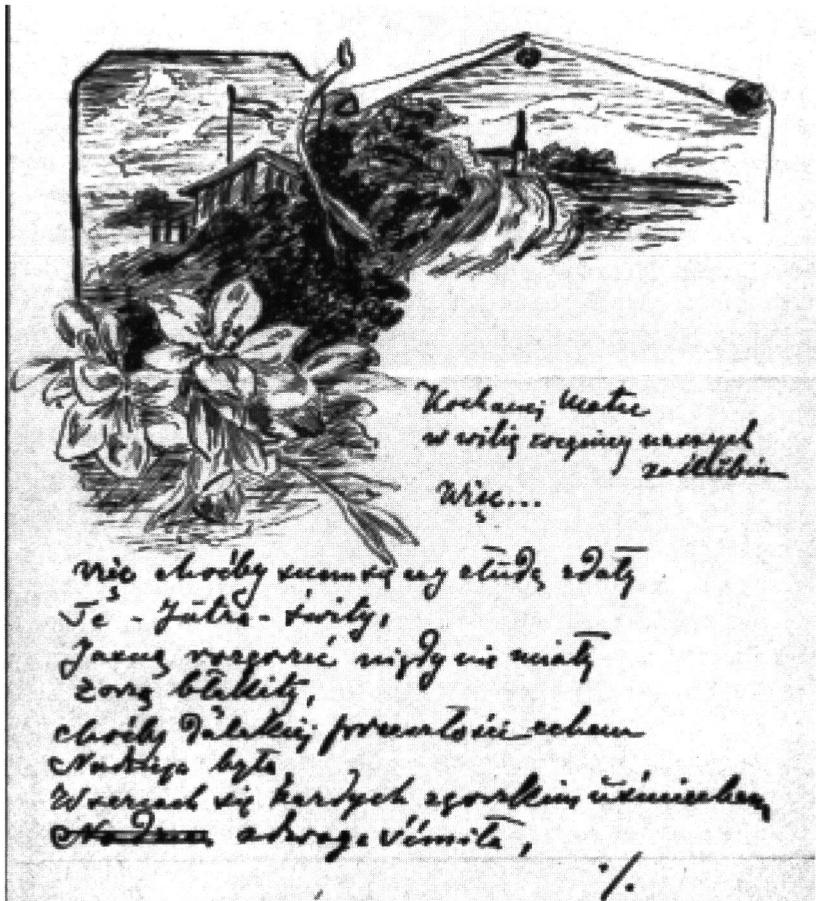 Kochanej Matce
w wilię rocznicy naszych
zaślubin
Więc...
więc choćby się złudą zdały
Te - Jutra - świty,
Jasną rozgorzeć nigdy nie miały
Zorzą błękity,
choćby dalekiej przeszłości echem
Nadzieja była
W sercach się hardych z gorzkim uśmiechem
odwaga ćmiła,
./.